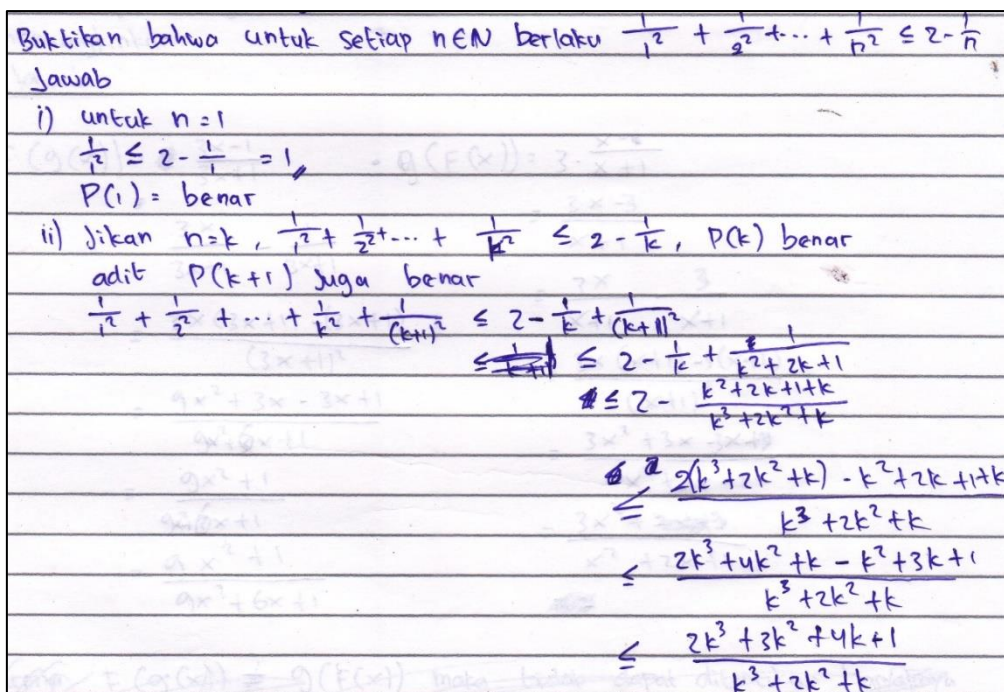 Buktikan bahwa untuk setiap n∈N berlaku 1/1² + 1/2² + ... + 1/n² ≤ 2 - 1/n
Jawab
i) untuk n = 1
1/1² ≤ 2 - 1/1 = 1
P(1) = benar
ii) Jikan n=k, 1/1² + 1/2² + ... + 1/k² ≤ 2 - 1/k, P(k) benar
adit P(k+1) juga benar
1/1² + 1/2² + ... + 1/k² + 1/(k+1)² ≤ 2 - 1/k + 1/(k+1)²
≤ 2 - 1/k + 1/(k²+2k+1)
≤ 2 - (k²+2k+1+k)/(k³+2k²+k)
≤ (2(k³+2k²+k) - k²+2k+1+k)/(k³+2k²+k)
≤ (2k³+4k²+k - k²+3k+1)/(k³+2k²+k)
≤ (2k³+3k²+4k+1)/(k³+2k²+k)